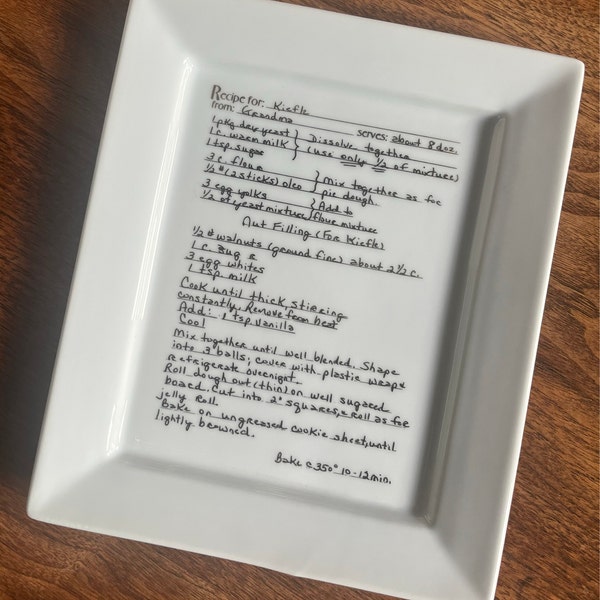 Recipe for: Kiefle
from: Grandma
serves: about 8 doz.
1 pkg. dry yeast } Dissolve together
1 c. warm milk } (use only 1/2 of mixture)
1 tsp. sugar
3 c. flour } Mix together as for
1/2 # (2 sticks) oleo } pie dough.
3 egg yolks } Add to
1/2 of yeast mixture } flour mixture
Nut Filling (For Kiefle)
1/2 # walnuts (ground fine) about 2 1/2 c.
1 c. sug r
3 egg whites
1 tsp milk
Cook until thick, stirring
constantly. Remove from heat
Add: 1 tsp. vanilla
Cool
Mix together until well blended. Shape
into 3 balls; cover with plastic wrap &
refrigerate overnight.
Roll dough out (thin) on well sugared
board. Cut into 2" squares, & roll as for
jelly roll.
Bake on ungreased cookie sheet, until
lightly browned.
Bake @ 350° 10-12 min.